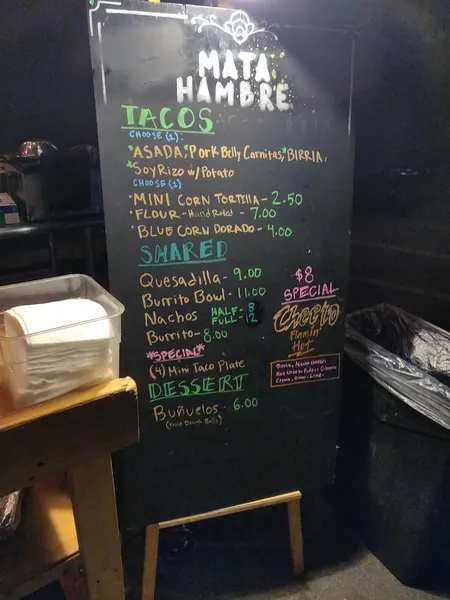 MATA
HAMBRE
TACOS
CHOOSE (1):
*ASADA, *Pork Belly Carnitas, *BIRRIA,
*Soyrizo w/ Potato
CHOOSE (1)
*MINI CORN TORTILLA - 2.50
*FLOUR - Hand Rolled - 7.00
*BLUE CORN DORADO - 4.00
SHARED
Quesadilla - 9.00
Burrito Bowl - 11.00
Nachos HALF- 8
FULL- 12
Burrito - 8.00
*SPECIAL*
(4) Mini Taco Plate
DESSERT
Buñuelos - 6.00
(Fried Dough Balls)
$8
SPECIAL
Cheeto
Flamin'
Hot
Birria, Nacho Cheese,
Hot Cheeto Puffs, Cilantro
Crema, Onion, Lime.